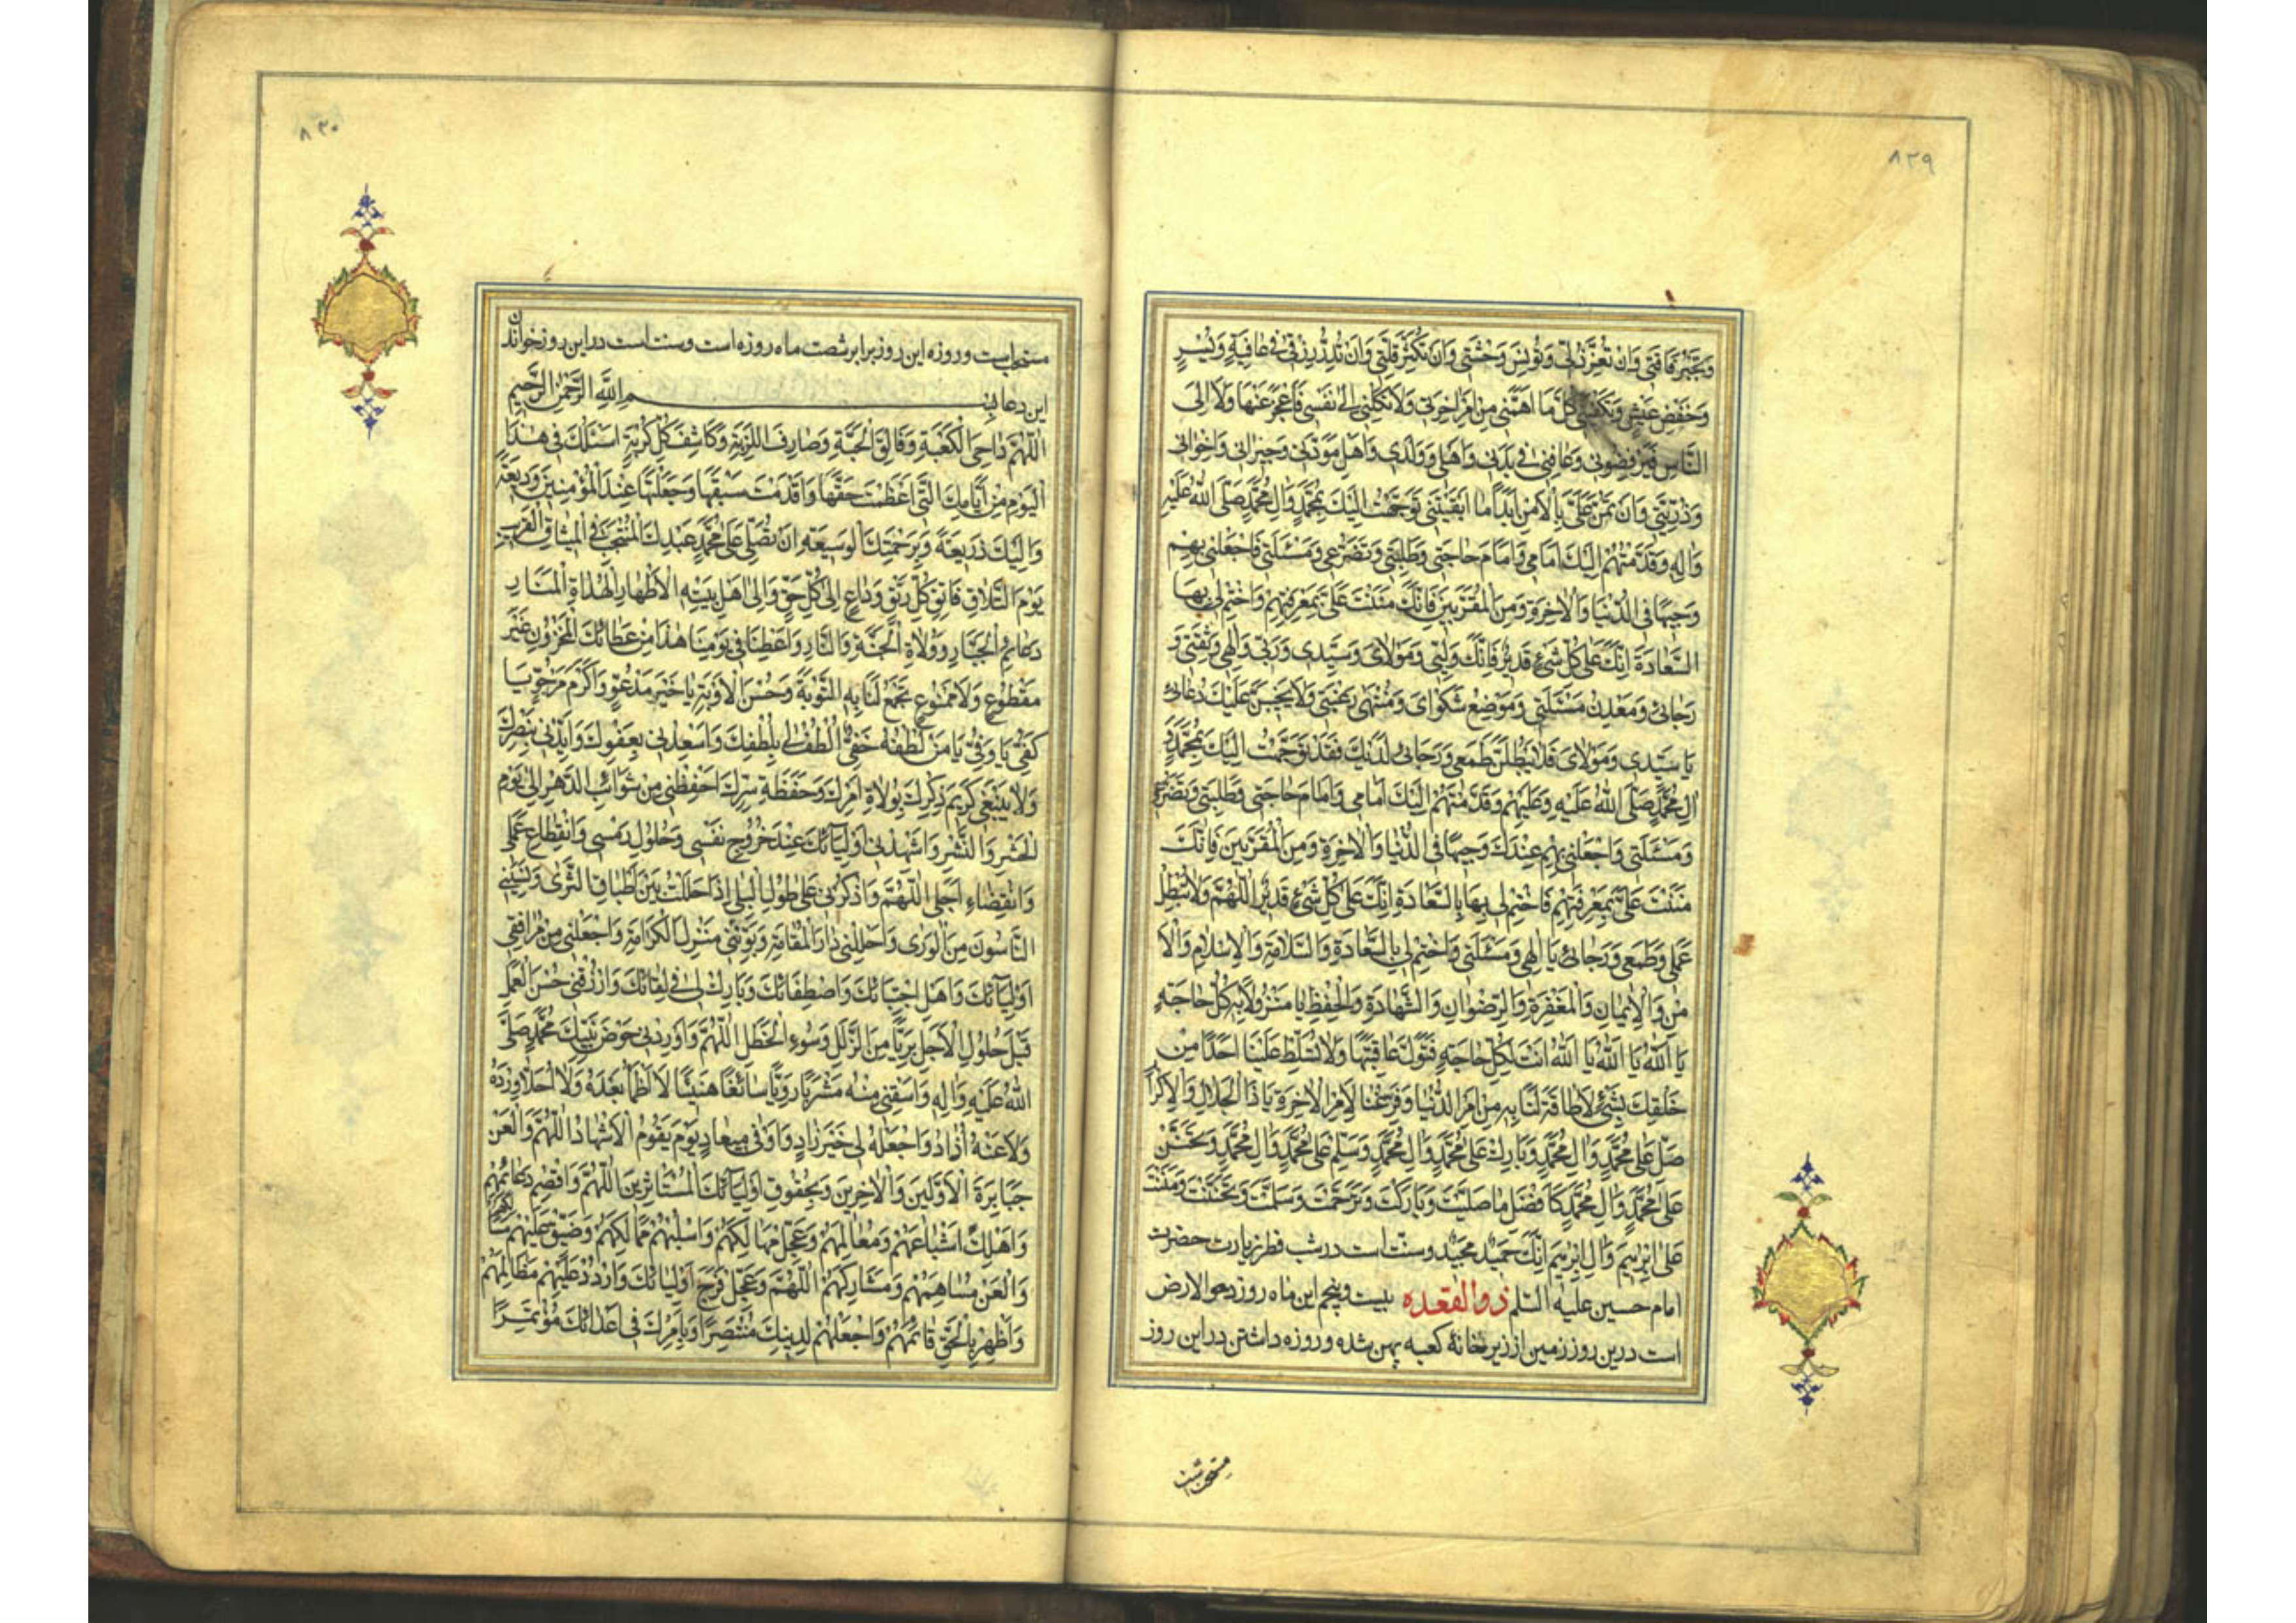 ٨٢٩
وَتَجْبُرَ فَاقَتِی وَاَنْ تُعِزَّ ذُلِّی وَتُونِسَ وَحْشَتِی وَاَنْ تُکَثِّرَ قِلَّتِی وَاَنْ تُدِرَّ رِزْقِی فِی عَافِیَةٍ وَیُسْرٍ
وَخَفْضِ عَیْشٍ وَتَکْفِیَنِی کُلَّ مَا اَهَمَّنِی مِنْ اَمْرِ اٰخِرَتِی وَلَا تَکِلْنِی اِلٰی نَفْسِی فَاَعْجِزَ عَنْهَا وَلَا اِلَی
النَّاسِ فَیَرْفِضُونِی وَعَافِنِی فِی بَدَنِی وَاَهْلِی وَوَلَدِی وَاَهْلِ مَوَدَّتِی وَجِیرَانِی وَاِخْوَانِی
وَذُرِّیَّتِی وَاَنْ تَمُنَّ عَلَیَّ بِالْاَمْنِ اَبَدًا مَا اَبْقَیْتَنِی تَوَجَّهْتُ اِلَیْكَ بِمُحَمَّدٍ وَاٰلِ مُحَمَّدٍ صَلَّی اللّٰهُ عَلَیْهِ
وَاٰلِهِ وَقَدَّمْتُهُمْ اِلَیْكَ اَمَامِی وَاَمَامَ حَاجَتِی وَطَلِبَتِی وَتَضَرُّعِی وَمَسْئَلَتِی فَاجْعَلْنِی بِهِمْ
وَجِیهًا فِی الدُّنْیَا وَالْاٰخِرَةِ وَمِنَ الْمُقَرَّبِینَ فَاِنَّكَ مَنَنْتَ عَلَیَّ بِمَعْرِفَتِهِمْ وَاخْتِمْ لِی بِهَا
السَّعَادَةَ اِنَّكَ عَلٰی کُلِّ شَیْءٍ قَدِیرٌ فَاِنَّكَ وَلِیِّی وَمَوْلَایَ وَسَیِّدِی وَرَبِّی وَاِلٰهِی وَثِقَتِی وَ
رَجَائِی وَمَعْدِنُ مَسْئَلَتِی وَمَوْضِعُ شَکْوَایَ وَمُنْتَهٰی رَغْبَتِی وَلَا یَخِیبَنَّ عَلَیْكَ دُعَائِی
یَا سَیِّدِی وَمَوْلَایَ فَلَا یَبْطُلَنَّ طَمَعِی وَرَجَائِی لَدَیْكَ فَقَدْ تَوَجَّهْتُ اِلَیْكَ بِمُحَمَّدٍ وَ
اٰلِ مُحَمَّدٍ صَلَّی اللّٰهُ عَلَیْهِ وَعَلَیْهِمْ وَقَدَّمْتُهُمْ اِلَیْكَ اَمَامِی وَاَمَامَ حَاجَتِی وَطَلِبَتِی وَتَضَرُّعِی
وَمَسْئَلَتِی وَاجْعَلْنِی بِهِمْ عِنْدَكَ وَجِیهًا فِی الدُّنْیَا وَالْاٰخِرَةِ وَمِنَ الْمُقَرَّبِینَ فَاِنَّكَ
مَنَنْتَ عَلَیَّ بِمَعْرِفَتِهِمْ فَاخْتِمْ لِی بِهَا بِالسَّعَادَةِ اِنَّكَ عَلٰی کُلِّ شَیْءٍ قَدِیرٌ اَللّٰهُمَّ وَلَا تُبْطِلْ
عَمَلِی وَطَمَعِی وَرَجَائِی یَا اِلٰهِی وَمَسْئَلَتِی وَاخْتِمْ لِی بِالسَّعَادَةِ وَالسَّلَامَةِ وَالْاِسْلَامِ وَالْاَ
مْنِ وَالْاِیمَانِ وَالْمَغْفِرَةِ وَالرِّضْوَانِ وَالشَّهَادَةِ وَالْحِفْظِ یَا مَنْزُولًا بِهِ کُلُّ حَاجَةٍ
یَا اَللّٰهُ یَا اَللّٰهُ یَا اَللّٰهُ اَنْتَ لِکُلِّ حَاجَةٍ فَتَوَلَّ عَاقِبَتَهَا وَلَا تُسَلِّطْ عَلَیْنَا اَحَدًا مِنْ
خَلْقِكَ بِشَیْءٍ لَا طَاقَةَ لَنَا بِهِ مِنْ اَمْرِ الدُّنْیَا وَفَرِّغْنَا لِاَمْرِ الْاٰخِرَةِ یَا ذَا الْجَلَالِ وَالْاِکْرَامِ
صَلِّ عَلٰی مُحَمَّدٍ وَاٰلِ مُحَمَّدٍ وَبَارِكْ عَلٰی مُحَمَّدٍ وَاٰلِ مُحَمَّدٍ وَسَلِّمْ عَلٰی مُحَمَّدٍ وَاٰلِ مُحَمَّدٍ وَتَحَنَّنْ
عَلٰی مُحَمَّدٍ وَاٰلِ مُحَمَّدٍ کَاَفْضَلِ مَا صَلَّیْتَ وَبَارَکْتَ وَتَرَحَّمْتَ وَسَلَّمْتَ وَتَحَنَّنْتَ وَمَنَنْتَ
عَلٰی اِبْرٰهِیمَ وَاٰلِ اِبْرٰهِیمَ اِنَّكَ حَمِیدٌ مَجِیدٌ وسنت است در شب فطر زیارت حضرت
امام حسین علیه السلم ذو القعده بیست وپنجم این ماه روز دحو الارض
است درین روز زمین از زیر خانهٔ کعبه پهن شده و روزه داشتن در این روز
مستحبست
٨٣٠
مستحبست وروزه این روز برابر شصت ماه روزه است وسنت است در این روز خواندن
این دعا بِسْمِ اللّٰهِ الرَّحْمٰنِ الرَّحِیمِ
اَللّٰهُمَّ دَاحِیَ الْکَعْبَةِ وَفَالِقَ الْحَبَّةِ وَصَارِفَ اللَّزْبَةِ وَکَاشِفَ کُلِّ کُرْبَةٍ اَسْئَلُكَ فِی هٰذَا
الْیَوْمِ مِنْ اَیَّامِكَ الَّتِی اَعْظَمْتَ حَقَّهَا وَاَقْدَمْتَ سَبْقَهَا وَجَعَلْتَهَا عِنْدَ الْمُؤْمِنِینَ وَدِیعَةً
وَاِلَیْكَ ذَرِیعَةً وَبِرَحْمَتِكَ الْوَسِیعَةِ اَنْ تُصَلِّیَ عَلٰی مُحَمَّدٍ عَبْدِكَ الْمُنْتَجَبِ فِی الْمِیثَاقِ الْقَرِیبِ
یَوْمَ التَّلَاقِ فَاتِقِ کُلِّ رَتْقٍ وَدَاعٍ اِلٰی کُلِّ حَقٍّ وَاِلٰی اَهْلِ بَیْتِهِ الْاَطْهَارِ الْهُدَاةِ الْمَنَارِ
دَعَائِمِ الْجَبَّارِ وَوُلَاةِ الْجَنَّةِ وَالنَّارِ وَاَعْطِنَا فِی یَوْمِنَا هٰذَا مِنْ عَطَائِكَ الْمَخْزُونِ غَیْرَ
مَقْطُوعٍ وَلَا مَمْنُوعٍ تَجْمَعُ لَنَا بِهِ التَّوْبَةَ وَحُسْنَ الْاَوْبَةِ یَا خَیْرَ مَدْعُوٍّ وَاَکْرَمَ مَرْجُوٍّ یَا
کَفِیُّ یَا وَفِیُّ یَا مَنْ لُطْفُهُ خَفِیٌّ اُلْطُفْ لِی بِلُطْفِكَ وَاَسْعِدْنِی بِعَفْوِكَ وَاَیِّدْنِی بِنَصْرِكَ
وَلَا یَنْبَغِی کَرِیمَ ذِکْرِكَ بِوُلَاةِ اَمْرِكَ وَحَفَظَةِ سِرِّكَ احْفَظْنِی مِنْ شَوَائِبِ الدَّهْرِ اِلٰی یَوْمِ
الْحَشْرِ وَالنَّشْرِ وَاَشْهِدْنِی اَوْلِیَائَكَ عِنْدَ خُرُوجِ نَفْسِی وَحُلُولِ رَمْسِی وَانْقِطَاعِ عَمَلِی
وَانْقِضَاءِ اَجَلِی اَللّٰهُمَّ وَاذْکُرْنِی عَلٰی طُولِ الْبِلٰی اِذَا حَلَلْتُ بَیْنَ اَطْبَاقِ الثَّرٰی وَنَسِیَنِی
النَّاسُونَ مِنَ الْوَرٰی وَاَحْلِلْنِی دَارَ الْمُقَامَةِ وَبَوِّئْنِی مَنْزِلَ الْکَرَامَةِ وَاجْعَلْنِی مِنْ مُرَافِقِی
اَوْلِیَائِكَ وَاَهْلِ اجْتِبَائِكَ وَاصْطِفَائِكَ وَبَارِكْ لِی فِی لِقَائِكَ وَارْزُقْنِی حُسْنَ الْعَمَلِ
قَبْلَ حُلُولِ الْاَجَلِ بَرِیًّا مِنَ الزَّلَلِ وَسُوءِ الْخَطَلِ اَللّٰهُمَّ وَاَوْرِدْنِی حَوْضَ نَبِیِّكَ مُحَمَّدٍ صَلَّی
اللّٰهُ عَلَیْهِ وَاٰلِهِ وَاسْقِنِی مِنْهُ مَشْرَبًا رَوِیًّا سَائِغًا هَنِیئًا لَا اَظْمَأُ بَعْدَهُ وَلَا اُحَلَّأُ وِرْدَهُ
وَلَا عَنْهُ اُذَادُ وَاجْعَلْهُ لِی خَیْرَ زَادٍ وَاَوْفٰی مِیعَادٍ یَوْمَ یَقُومُ الْاَشْهَادُ اَللّٰهُمَّ وَالْعَنْ
جَبَابِرَةَ الْاَوَّلِینَ وَالْاٰخِرِینَ وَبِحُقُوقِ اَوْلِیَائِكَ الْمُسْتَاْثِرِینَ اَللّٰهُمَّ وَاقْصِمْ دَعَائِمَهُمْ
وَاَهْلِكْ اَشْیَاعَهُمْ وَمَعَالِمَهُمْ وَعَجِّلْ مَهَالِکَهُمْ وَاسْلُبْهُمْ مَمَالِکَهُمْ وَضَیِّقْ عَلَیْهِمْ مَسَالِکَهُمْ
وَالْعَنْ مُسَاهِمَهُمْ وَمُشَارِکَهُمْ اَللّٰهُمَّ وَعَجِّلْ فَرَجَ اَوْلِیَائِكَ وَارْدُدْ عَلَیْهِمْ مَظَالِمَهُمْ
وَاَظْهِرْ بِالْحَقِّ قَائِمَهُمْ وَاجْعَلْهُمْ لِدِینِكَ مُنْتَصِرًا وَبِاَمْرِكَ فِی اَعْدَائِكَ مُؤْتَمِرًا